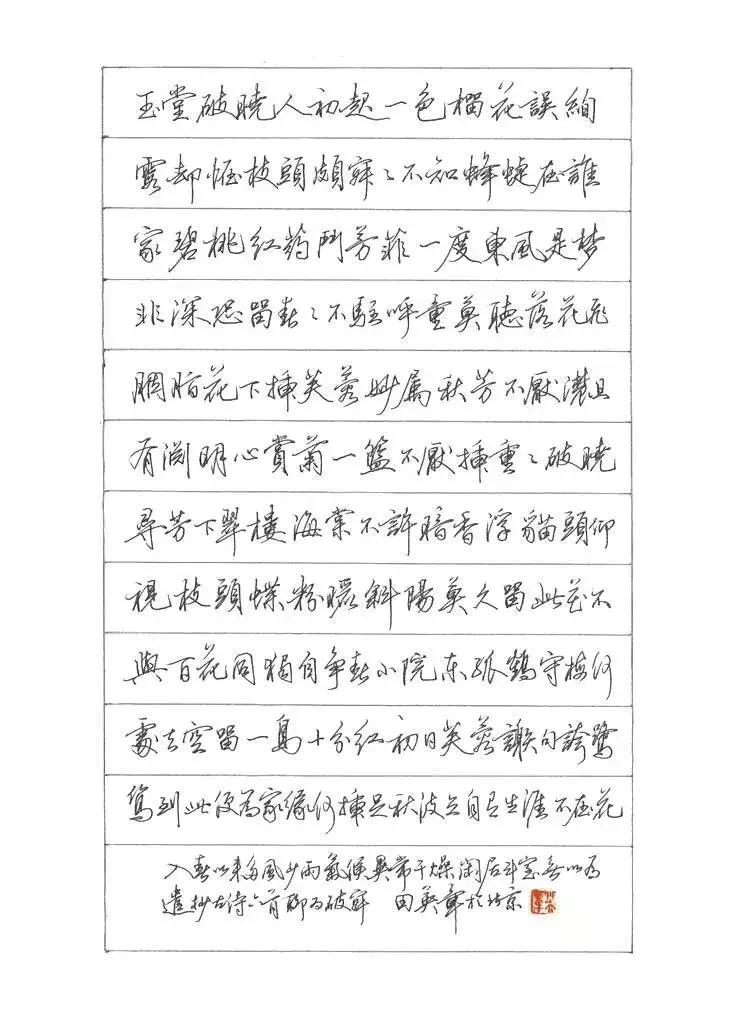 玉堂破曉人初起一色榴花誤絢
霞却恠枝頭頗寂〻不知蜂蝶在誰
家碧桃红药鬥芳菲一度東風是梦
非深恐留春〻不駐呼童莫聽落花飛
胭脂花下插芙蓉妙属秋芳不厭濃且
有渊明心赏菊一籃不厭插重〻破曉
尋芳下翠樓海棠不許暗香浮貓頭仰
視枝頭蝶粉暖斜陽莫久留此花不
與百花同獨自争春小院东孤鶴守梅何
處去空留一鳥十分红初日芙蓉謝句誇鷺
鷥到此便为家緣何插足秋波立自是生涯不在花
入春以来多風少雨氣候異常干燥閑居斗室無以為
遣抄古诗六首聊为破寂 田英章於北京